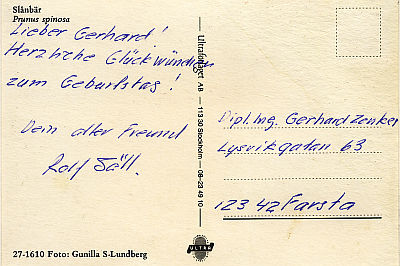 Slånbär
Prunus spinosa
Lieber Gerhard!
Herzliche Glückwünschen
zum Geburtstag!
Dein alter Freund
Rolf Säll.
27-1610 Foto: Gunilla S-Lundberg
Ultraförlaget AB — 113 30 Stockholm — 08-23 49 10
ULTRA
Dipl.Ing. Gerhard Zenker
Lysviksgatan 63
123 42 Farsta